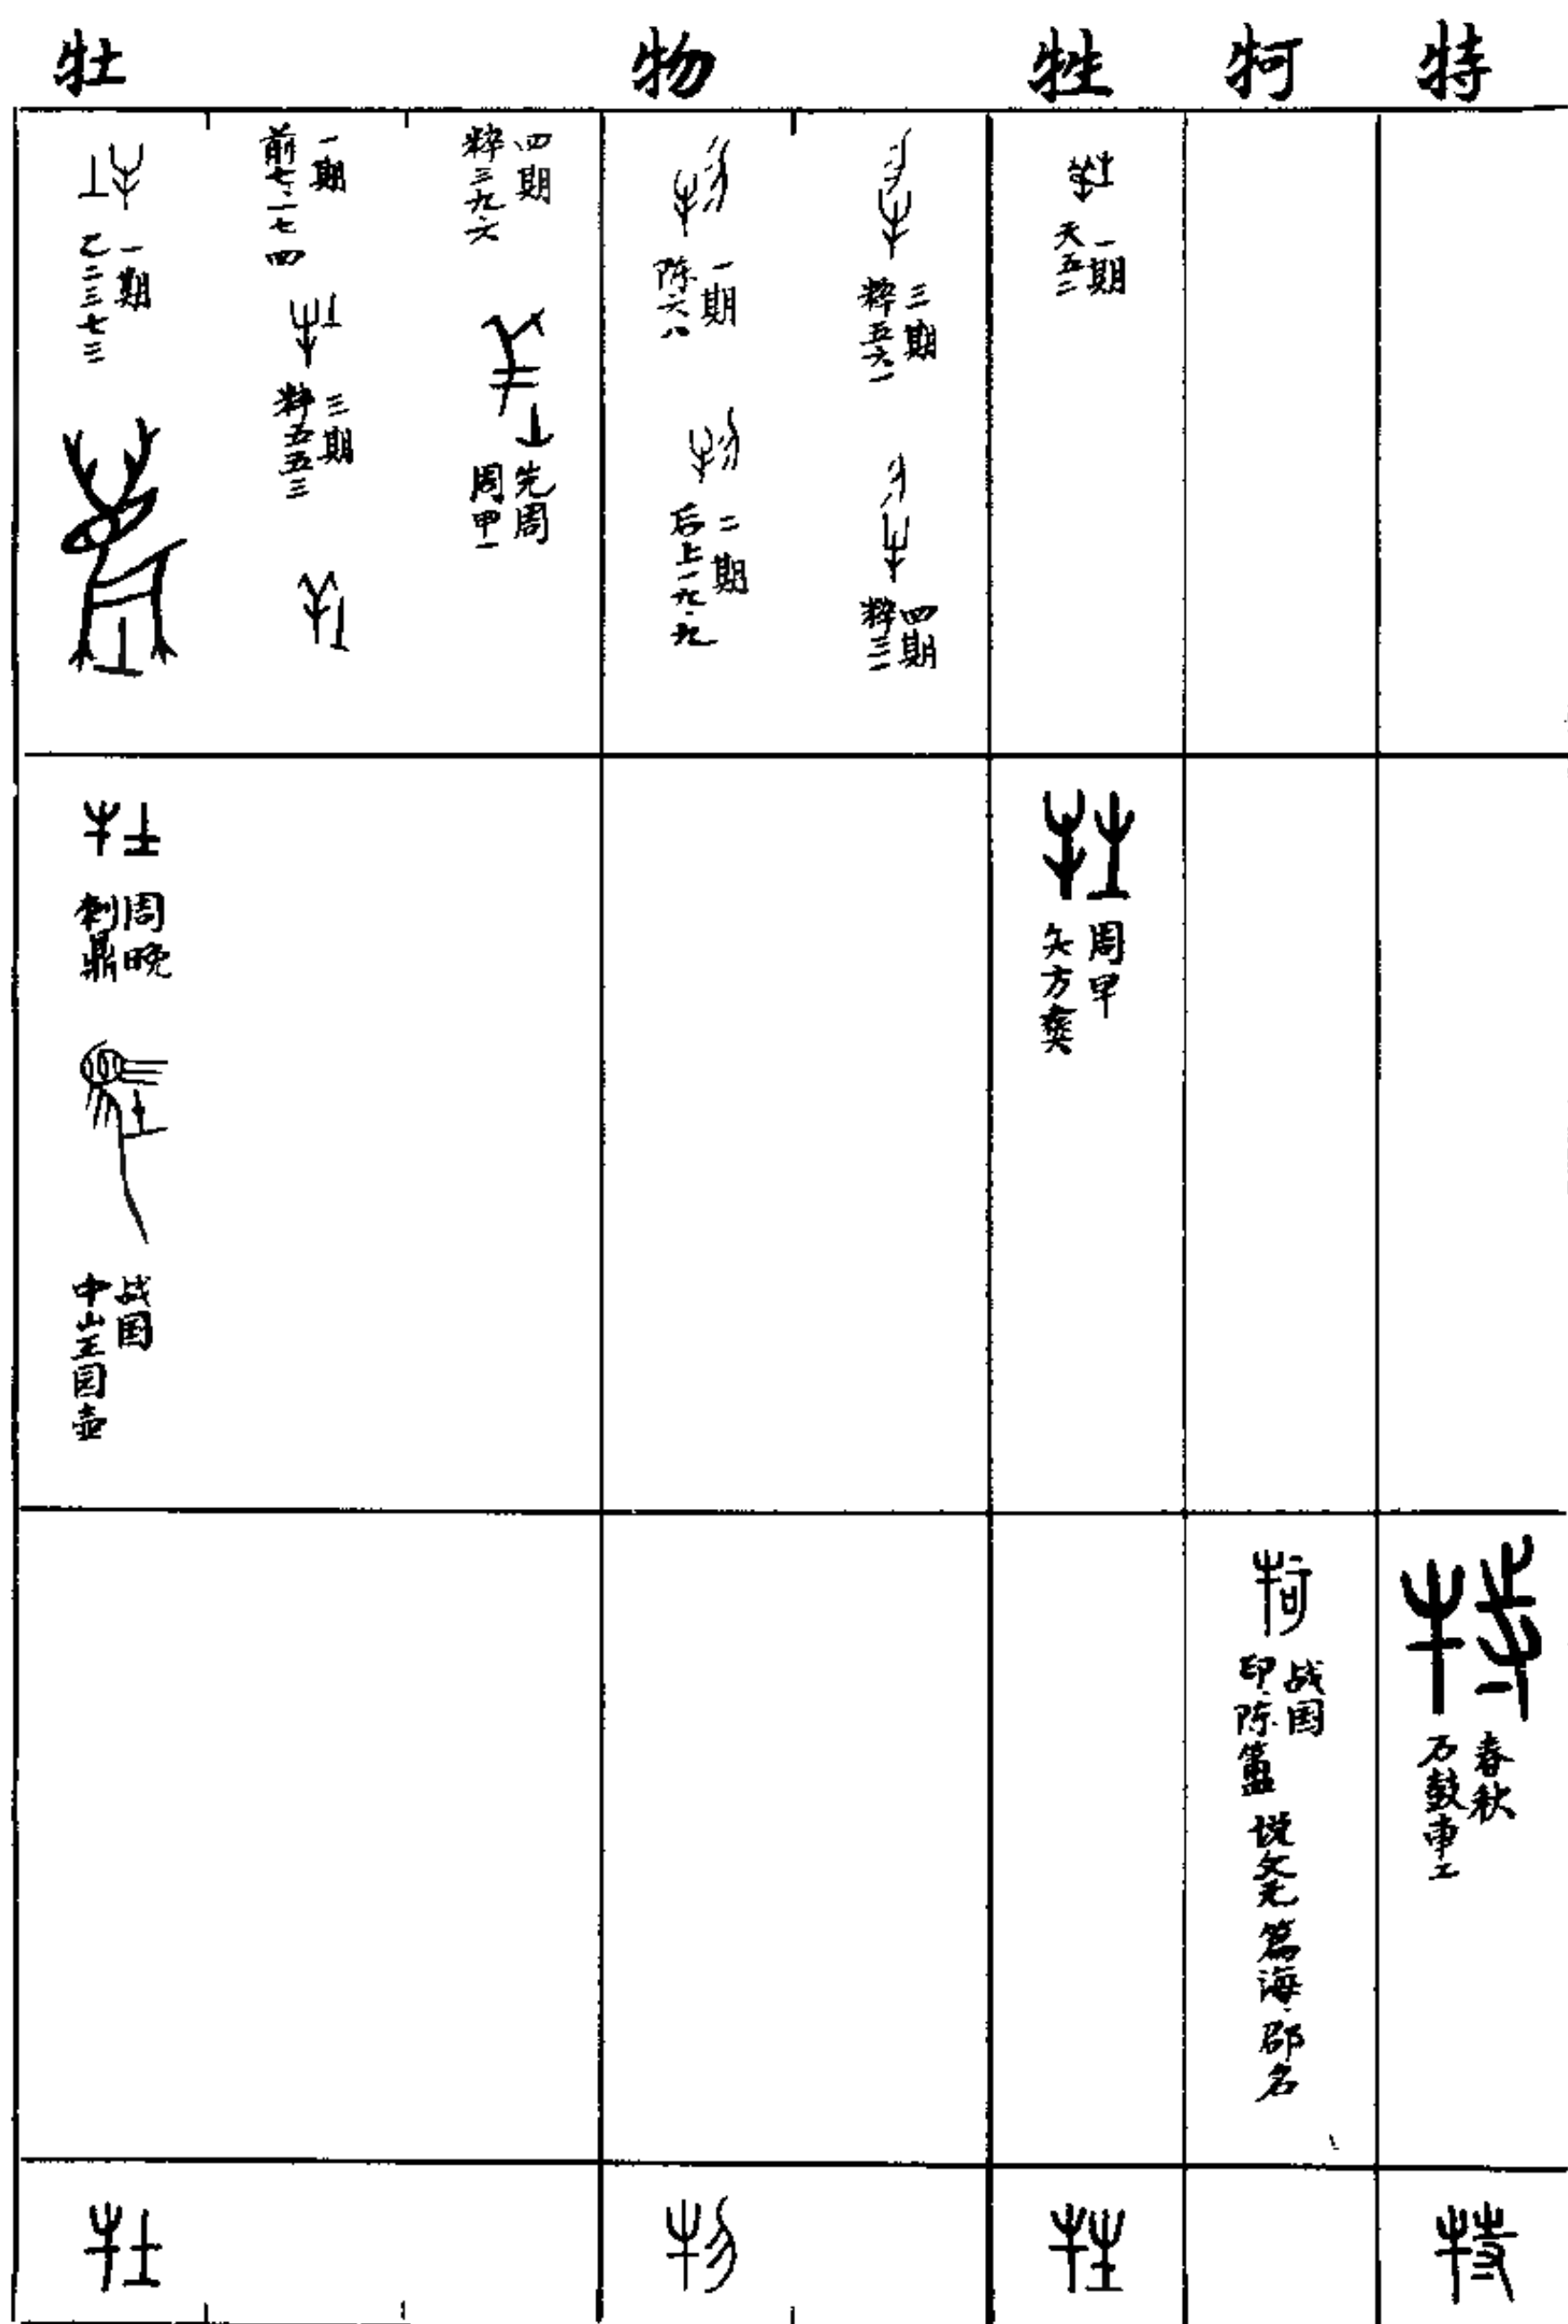 牡 物 牲 牱 特
一期
乙二三七三
一期
前七·一七·四
三期
粹五五三
四期
粹三九六
先周
周甲一
一期
陈六八
二期
后上一九·九
三期
粹五六一
四期
粹三二
一期
天五二
周晚
剌鼎
战国
中山王圆壶
周早
夨方彝
战国
印·陈簠
说文无
篇海·郡名
春秋
石鼓車工
牡 物 牲 特